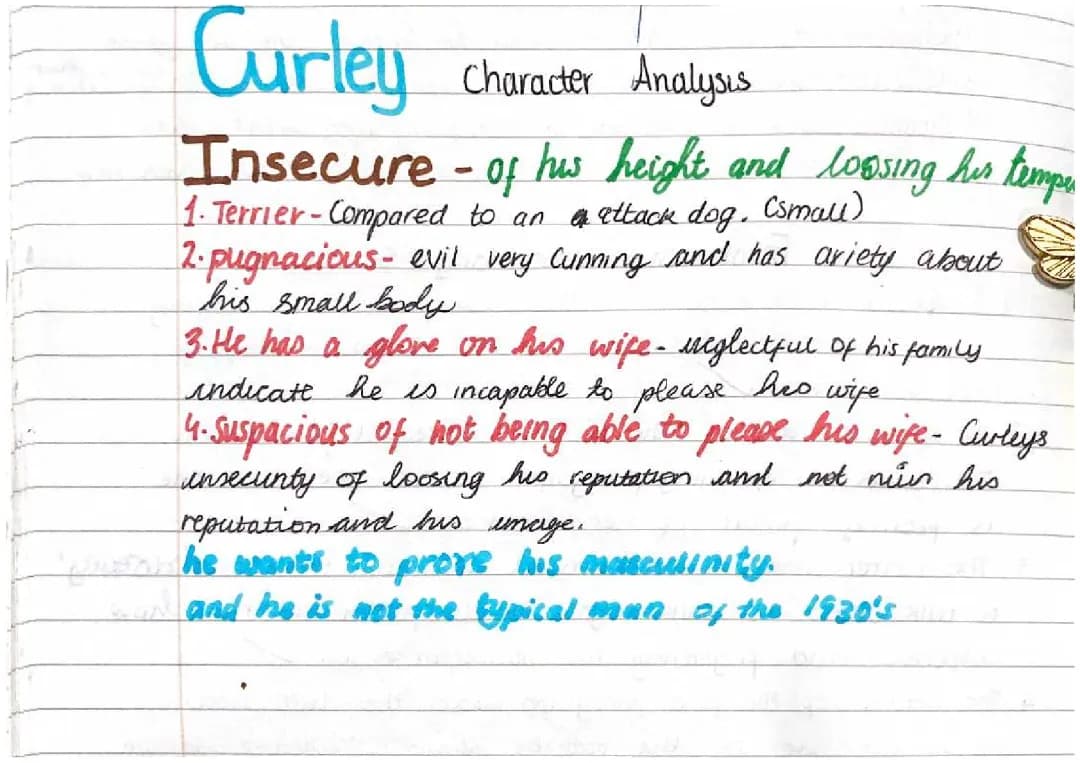 Curley Character Analysis
Insecure - of his height and loosing his tempe
1. Terrier - Compared to an attack dog. (small)
2. pugnacious - evil very cunning and has ariety about
his small body
3. He has a glove on his wife - neglectful of his family
indicate he is incapable to please his wife
4. Suspacious of not being able to please his wife - Curleys
insecurity of loosing his reputation and not his
reputation and his image.
he wants to prove his masculinity.
and he is not the typical man of the 1930's